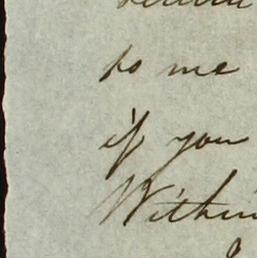 to me
if you
Within